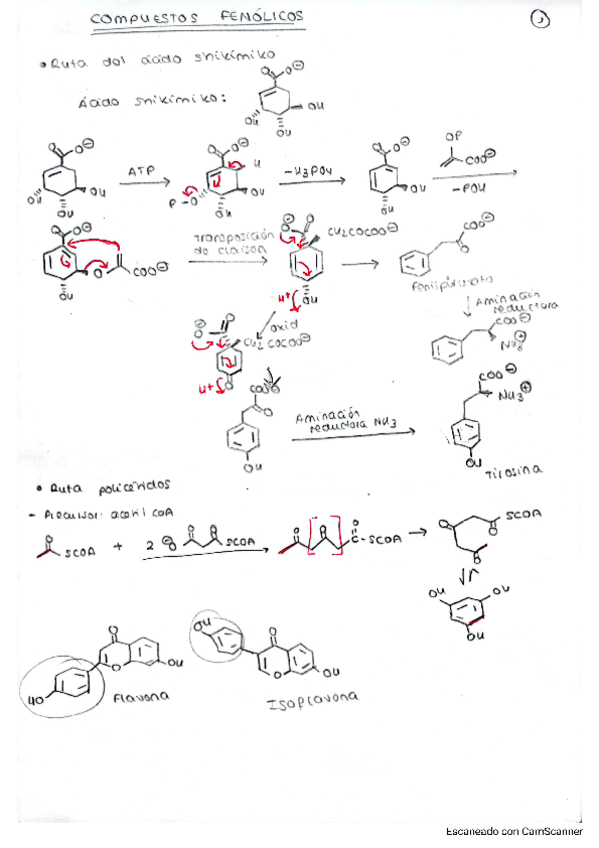 COMPUESTOS FENÓLICOS
1
• Ruta del ácido shikímico
Ácido shikímico:
COO⊖
OH
OH
OH
ATP
P-O
H
OH
OH
-H3PO4
OH
OH
OP
COO⊖
-POH
O
COO⊖
OH
Transposición
de claisen
CH2COCOO⊖
OH
H+
Fenilpiruvato
Aminación
reductora
COO⊖
NH3⊕
oxid
CH2COCOO⊖
H+
COO⊖
O
OH
Aminación
reductora NH3
COO⊖
NH3⊕
OH
Tirosina
• Ruta policétidos
- Precursor: acetil coA
SCOA + 2 SCOA
C-SCOA
SCOA
OH
OH
OH
HO
OH
Flavona
OH
OH
ISOFLAVONA
Escaneado con CamScanner